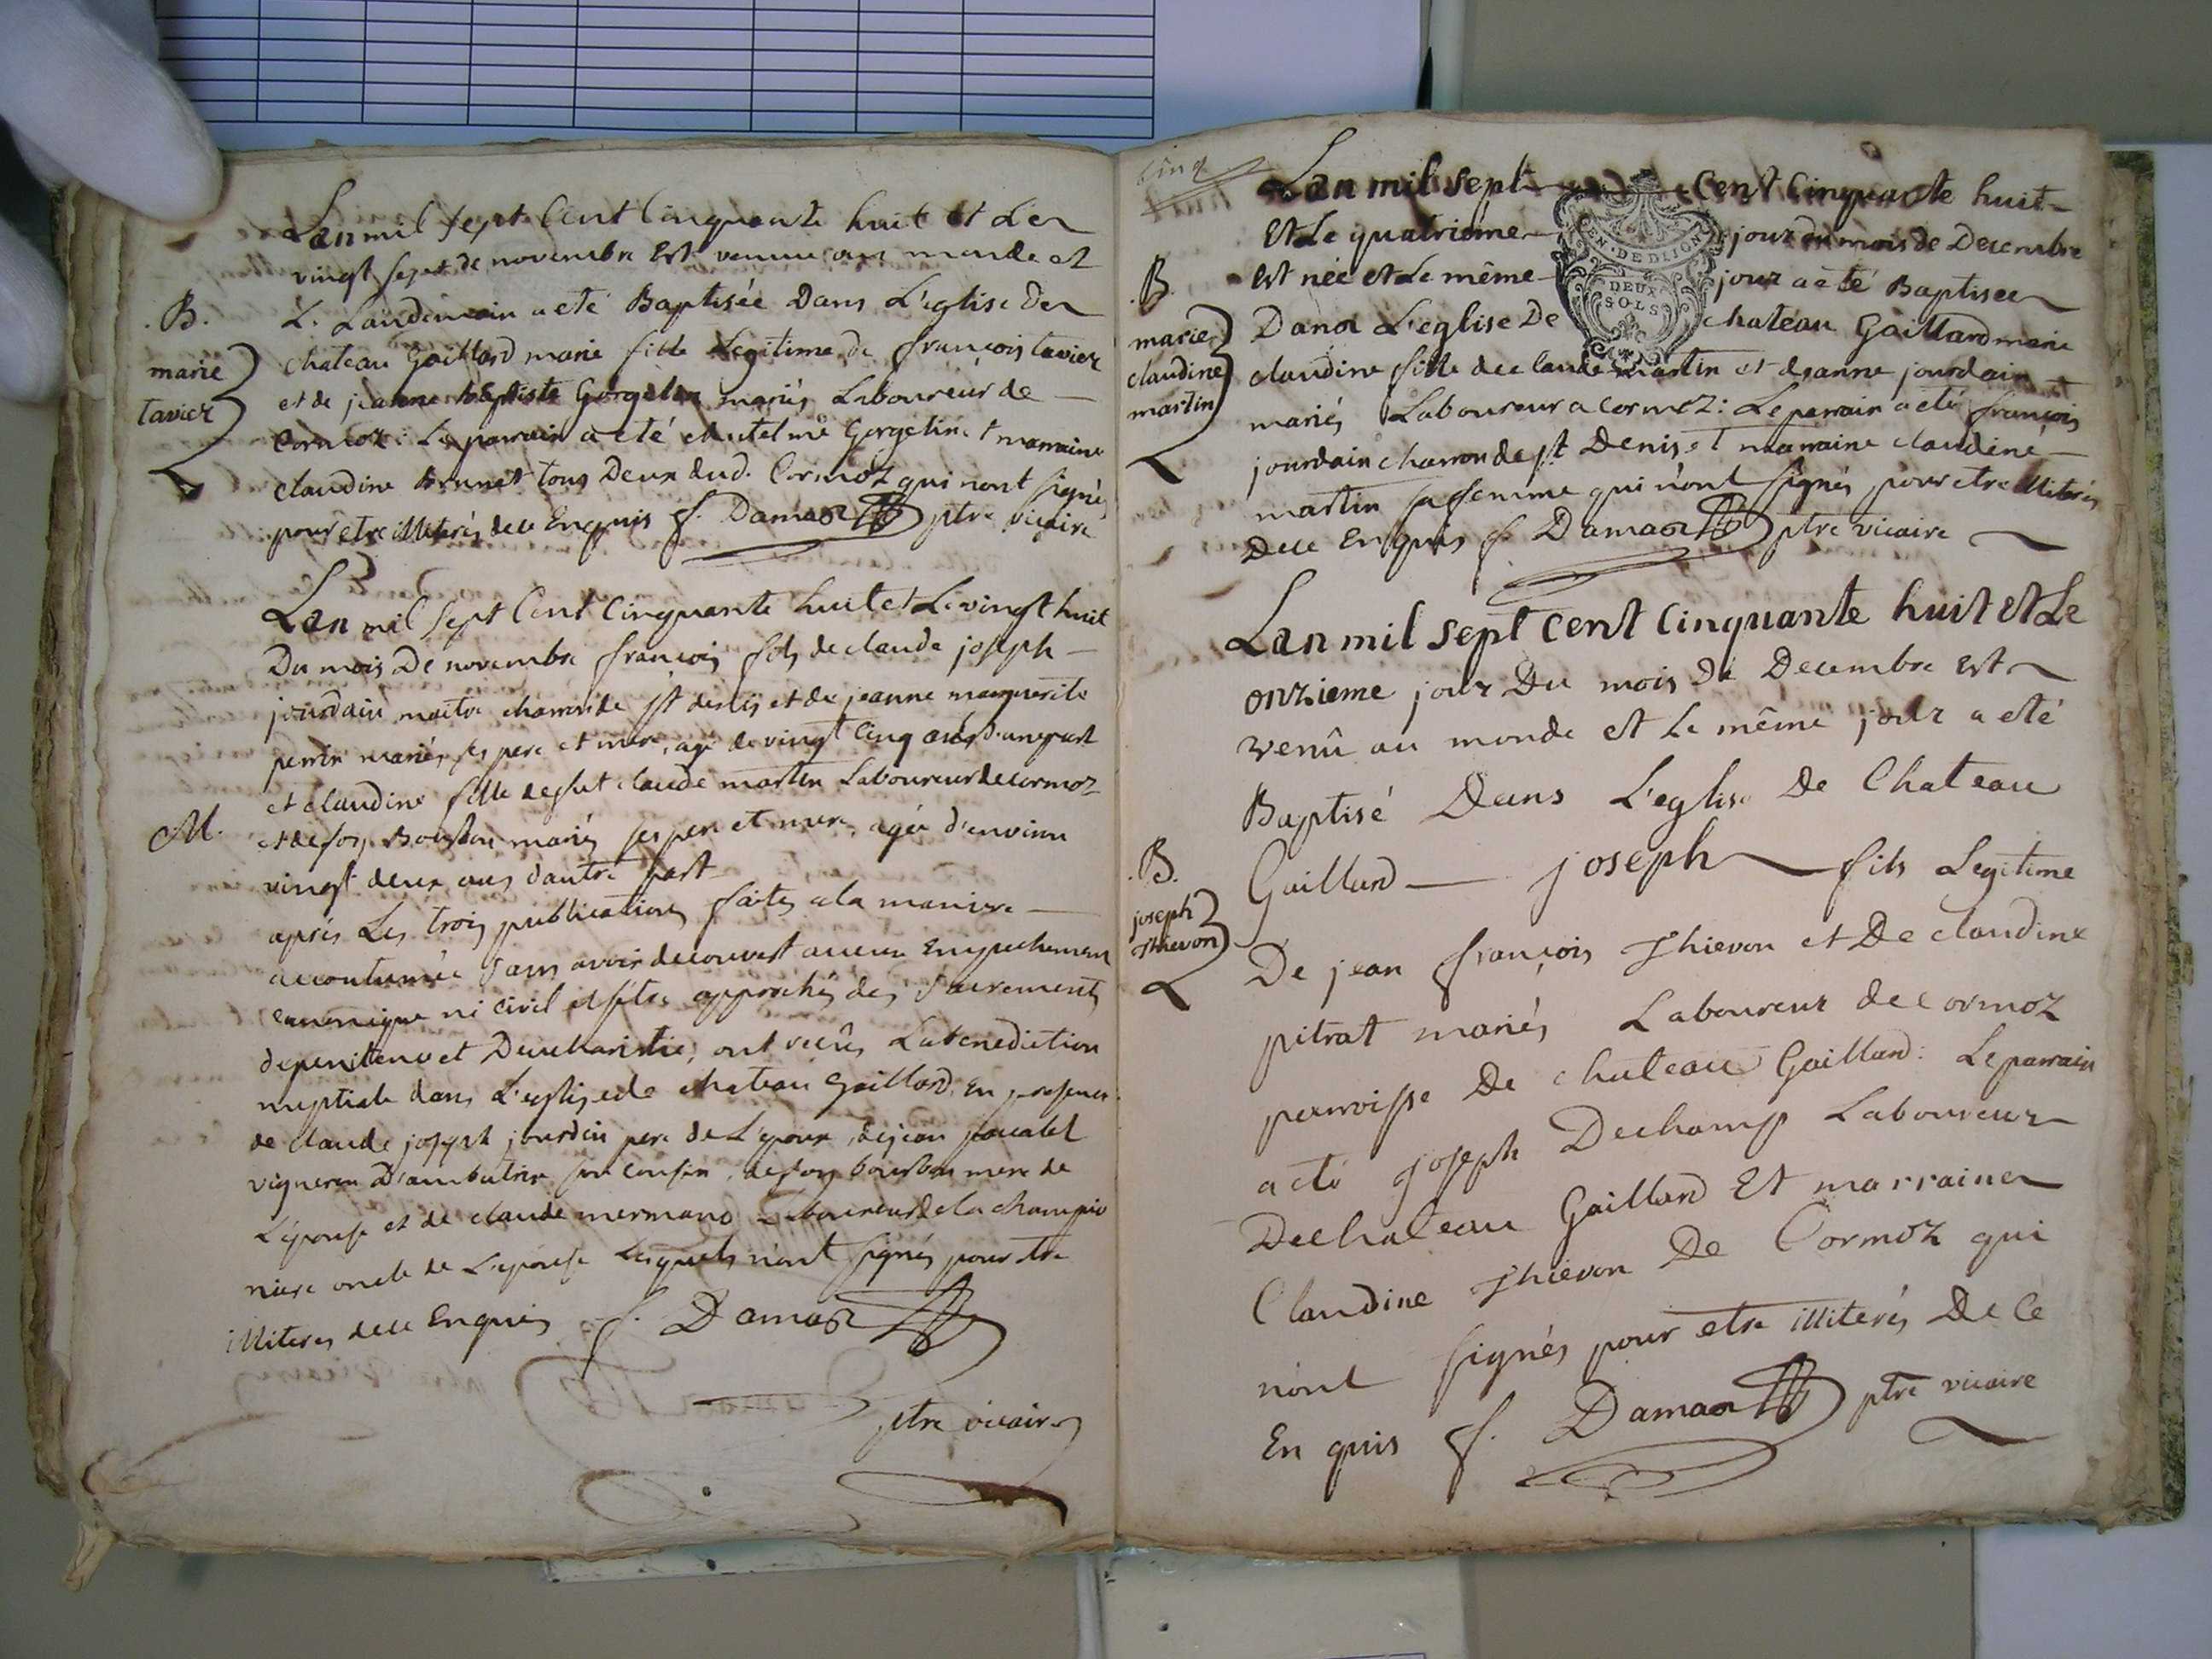 Lan mil sept Cent Cinquante huit et Le
vingt sept de novembre Est venue au monde et
.B.
L. Landemain a eté Baptisée Dans L'eglise De
marie
tavier
chateau Gaillard marie fille Legitime de françois tavier
et de jeanne baptiste Gorgelin mariés Laboureur de
Cormoz: Le parrain a eté Gorgelin et marraine
claudine Brunet tous Deux dud. Cormoz qui nont signé
pour etre illiterés de ce Enquis f. Damas ptre vicaire
Lan mil sept Cent Cinquante huit et Le vingt huit
Du mois De novembre françois fils de claude joseph
jourdain maitre charron de st denis et de jeanne marguerite
perrin mariés ses pere et mere, agé de vingt Cinq ans d'une part
et claudine fille de fut claude martin Laboureur de cormoz
M.
et de foy Bourbon mariés ses pere et mere, agée d'environ
vingt deux ans d'autre part
aprés Les trois publications faites a la maniere
accoutumée sans avoir decouvert aucun Empechement
canonique ni civil et s'être approchés des sacrements
de penitence et D'eucharistie, ont reçûs La benediction
nuptiale dans L'eglise de chateau Gaillard, En presence
de claude joseph jourdain pere de L'epoux, de jean
vigneron D'ambutrix son cousin, de foy bourbon mere de
L'epouse et de claude mermand Laboureur de la champio
niere oncle de L'epouse Lesquels n'ont signés pour etre
illiteres de ce Enquis f. Damas
ptre vicaire
cinq
Lan mil sept Cent Cinquante huit
Et Le quatriéme jour du mois de Decembre
EN. DE DIJON
DEUX
SOLS
.B.
Est née et Le même jour a eté Baptisée
marie
claudine
martin
Dans L'eglise De chateau Gaillard marie
claudine fille de claude martin et deanne jourdain
mariés Laboureur a cormoz: Le parrain a eté françois
jourdain charron de st Denis et marraine claudine
martin sa femme qui n'ont signés pour etre illiterés
De ce Enquis f. Damas ptre vicaire
Lan mil sept Cent Cinquante huit et Le
onzieme jour Du mois De Decembre Est
venû au monde et Le même jour a eté
Baptisé Dans L'eglise De Chateau
.B.
joseph
Thievon
Gaillard joseph fils Legitime
De jean françois Thievon et De claudine
pitrat mariés Laboureur de cormoz
parroisse De chateau Gaillard: Le parrain
a eté joseph Dechamp Laboureur
De chateau Gaillard Et marraine
Claudine Thievon De Cormoz qui
nont signés pour etre illiterés De Ce
En quis f. Damas ptre vicaire